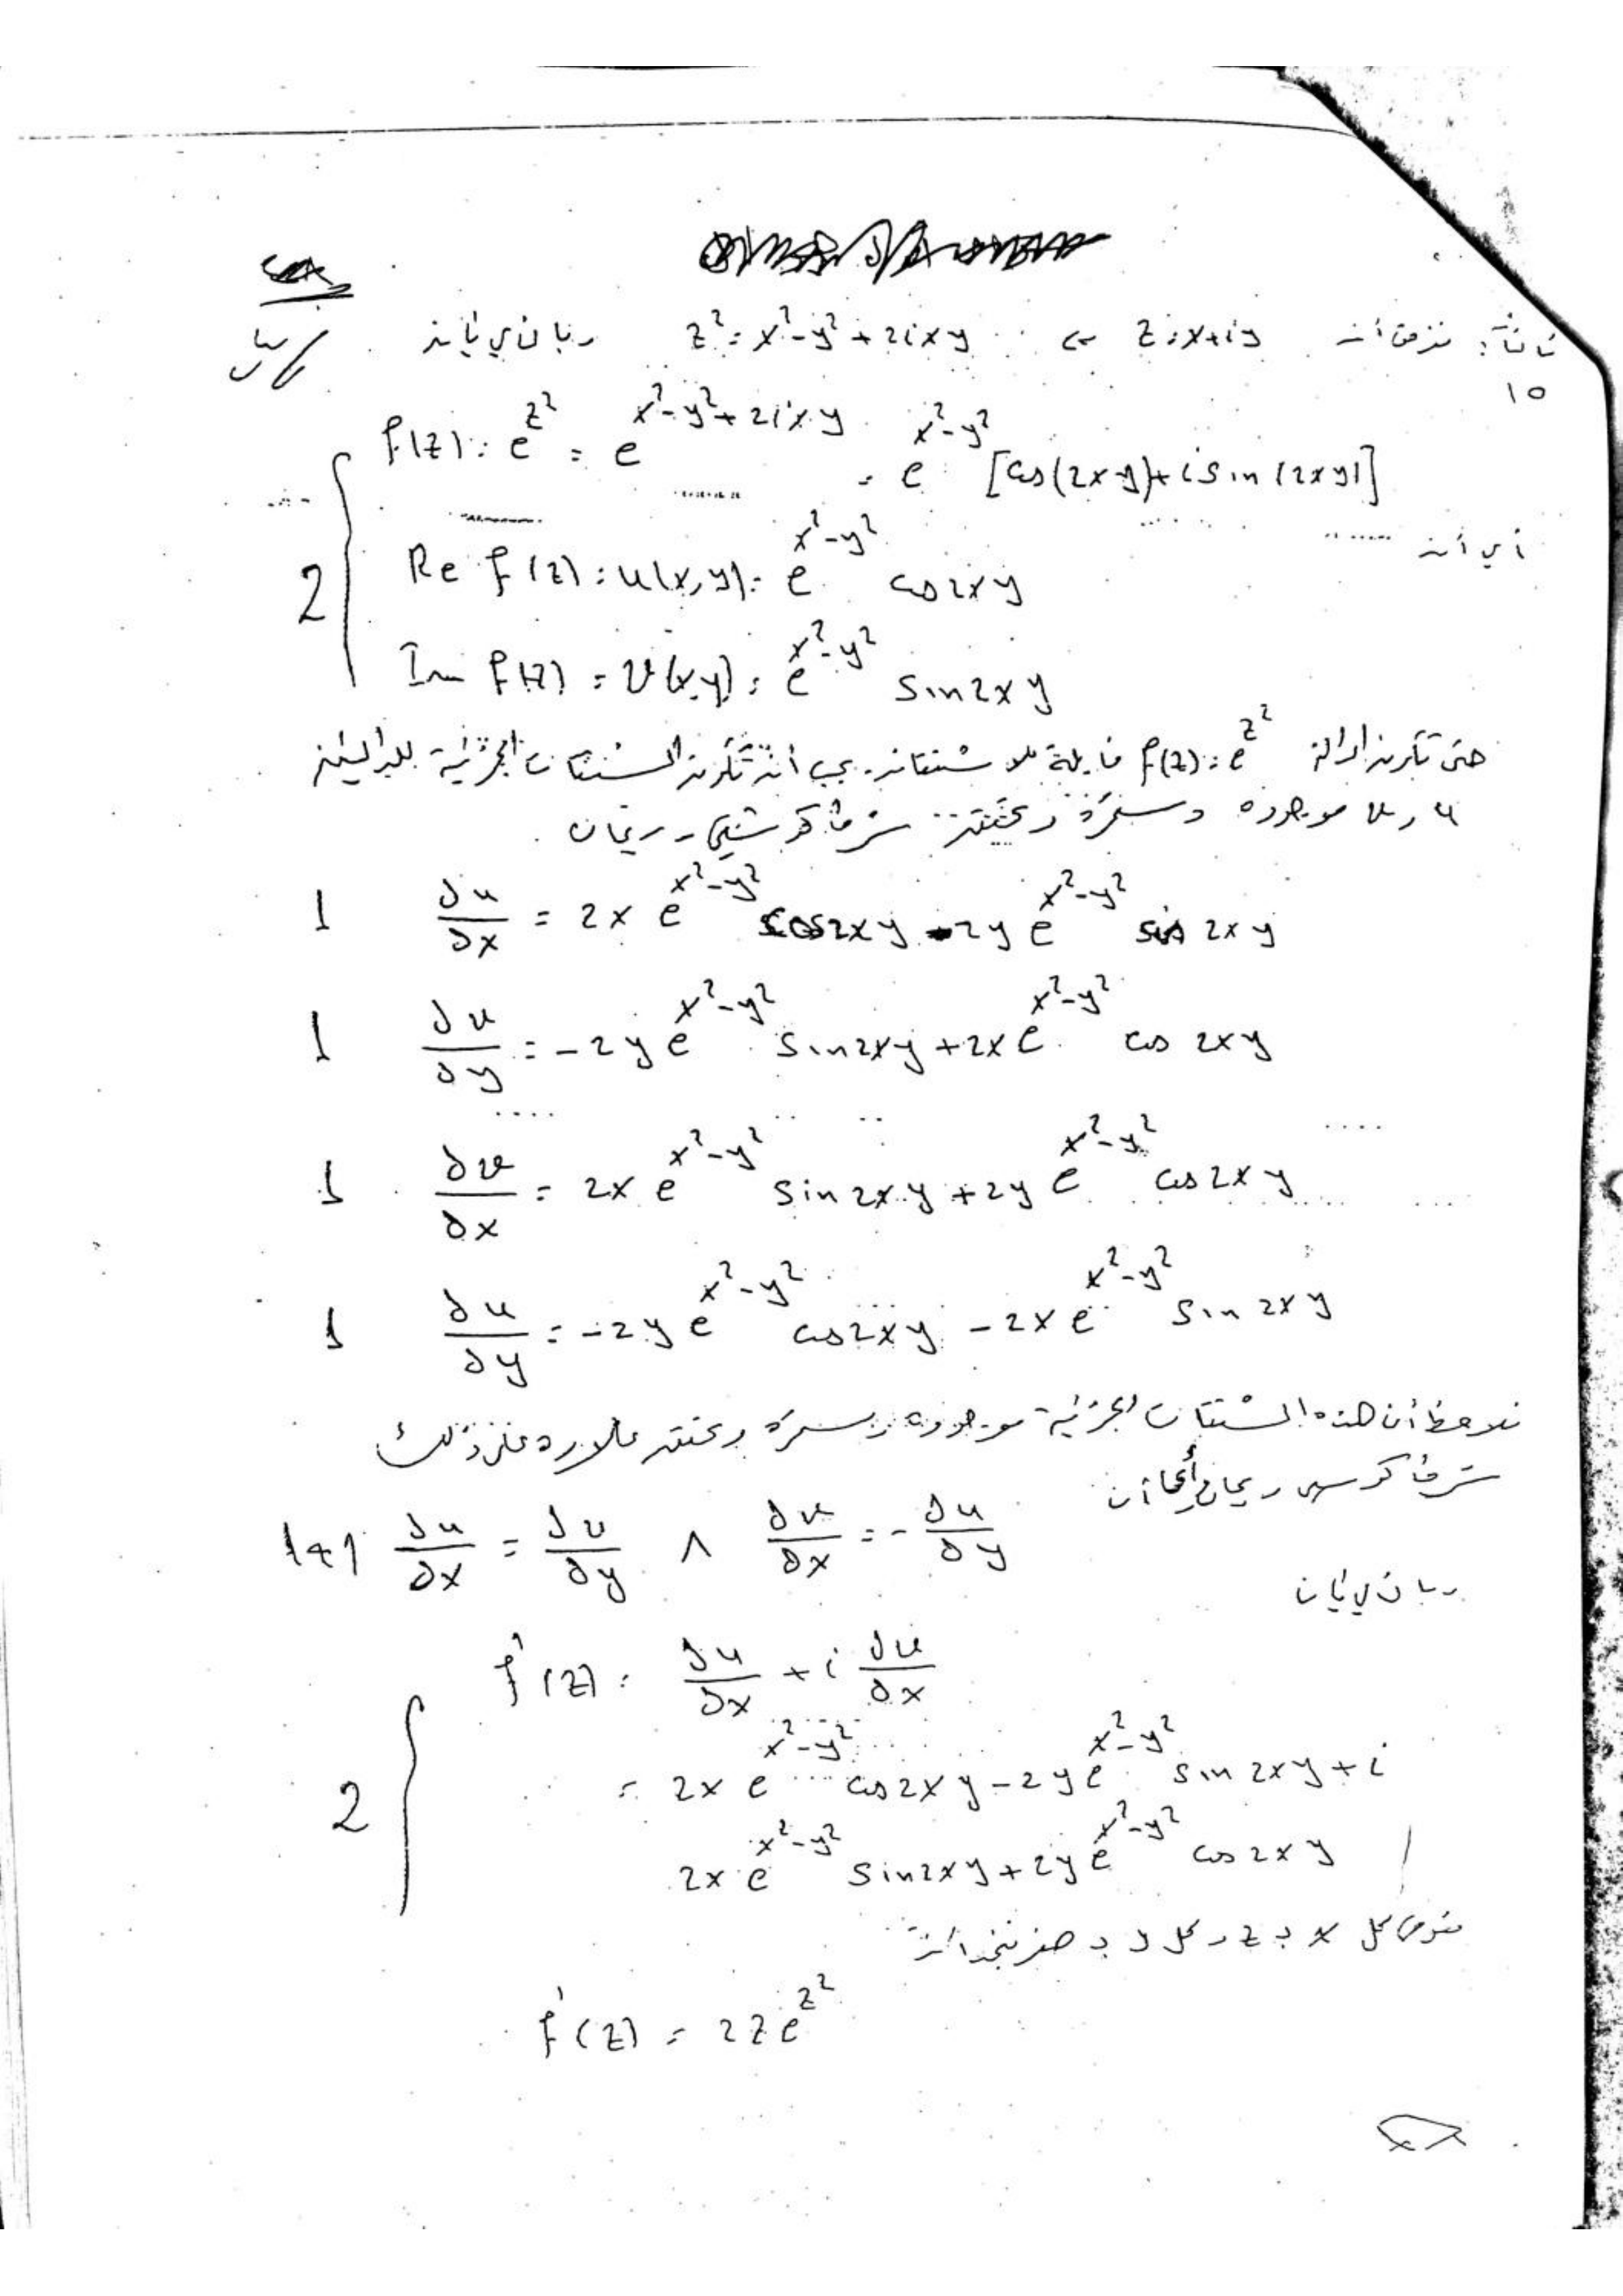 ثالثاً: نفرض أن z = x+iy ⇐ z² = x²-y²+2ixy وبالتالي فإن
10
f(z) = e^{z²} = e^{x²-y²+2ixy} = e^{x²-y²} [cos(2xy)+i sin(2xy)]
أي أن
2 Re f(z) = u(x,y) = e^{x²-y²} cos2xy
Im f(z) = v(x,y) = e^{x²-y²} sin2xy
حتى تكون الدالة f(z) = e^{z²} قابلة للاشتقاق يجب أن تكون المشتقات الجزئية للدالتين
u و v موجودة ومستمرة وتحقق شرطا كوشي - ريمان .
1 ∂u/∂x = 2x e^{x²-y²} cos2xy - 2y e^{x²-y²} sin 2xy
1 ∂v/∂y = -2y e^{x²-y²} sin2xy + 2x e^{x²-y²} cos 2xy
1 ∂v/∂x = 2x e^{x²-y²} sin 2xy + 2y e^{x²-y²} cos 2xy
1 ∂u/∂y = -2y e^{x²-y²} cos2xy - 2x e^{x²-y²} sin 2xy
نلاحظ أن هذه المشتقات الجزئية موجودة ومستمرة وتحقق علاوة على ذلك
شرطا كوشي ريمان أن
1+1 ∂u/∂x = ∂v/∂y ∧ ∂v/∂x = - ∂u/∂y
وبالتالي فإن
f'(z) = ∂u/∂x + i ∂v/∂x
2 = 2x e^{x²-y²} cos2xy - 2y e^{x²-y²} sin 2xy + i
2x e^{x²-y²} sin2xy + 2y e^{x²-y²} cos 2xy
نعوض كل x بـ z وكل y بـ صفر فنجد أن
f'(z) = 2z e^{z²}